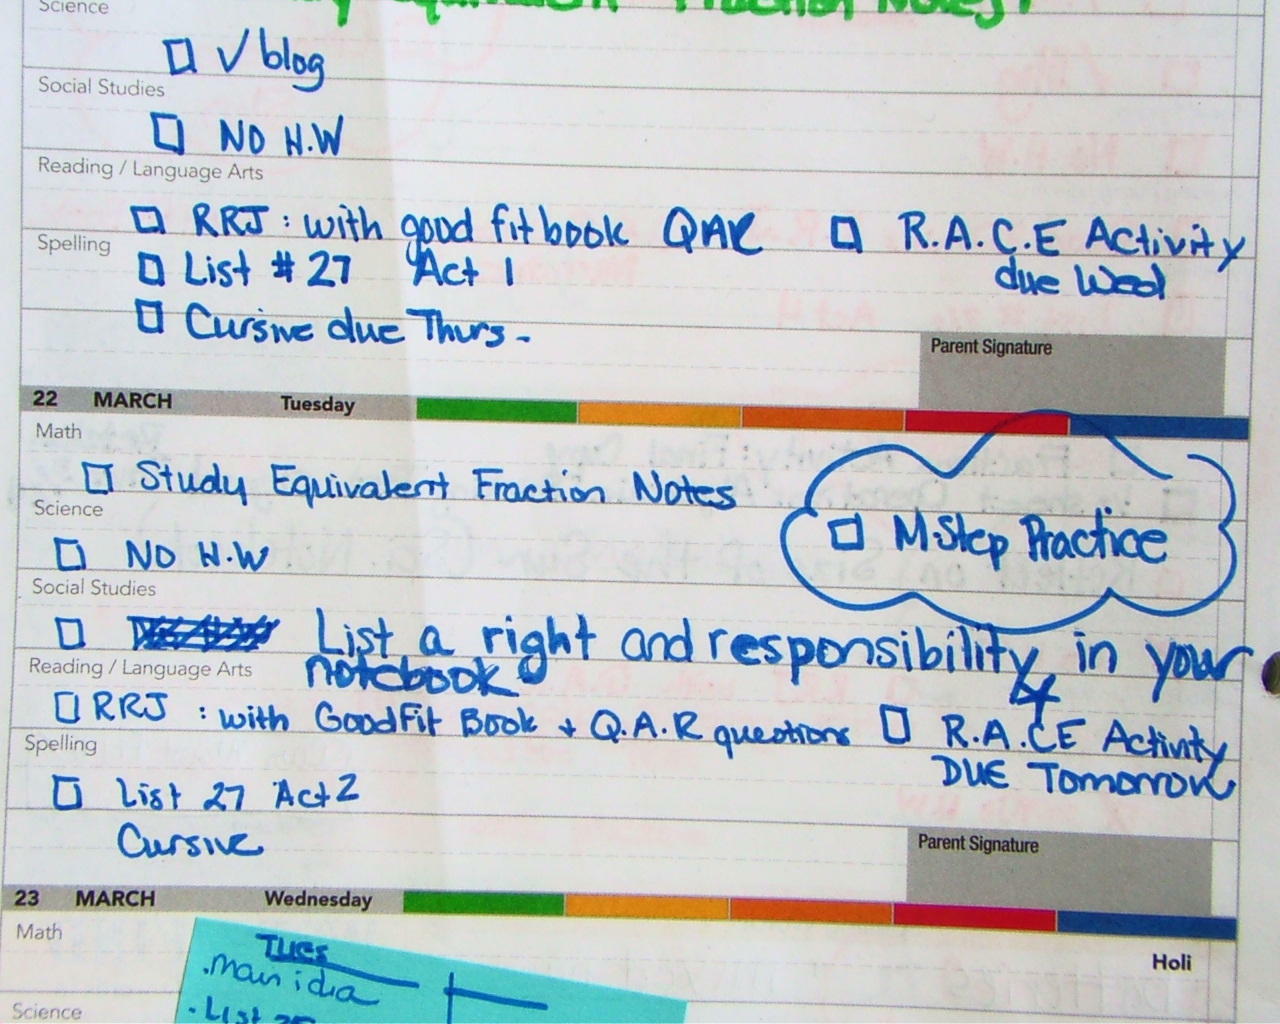 Equivalent Fraction Notes!
Science
√ blog
Social Studies
NO H.W
Reading / Language Arts
RRJ : with good fit book QAR
R.A.C.E Activity
due Wed
Spelling
List # 27 Act 1
Cursive due Thurs.
Parent Signature
22 MARCH Tuesday
Math
Study Equivalent Fraction Notes
M-Step Practice
Science
NO H.W
Social Studies
List a right and responsibility in your
notebook
Reading / Language Arts
RRJ : with GoodFit Book + Q.A.R questions
R.A.CE Activity
DUE Tomorrow
Spelling
List 27 Act 2
Cursive
Parent Signature
23 MARCH Wednesday
Math
Holi
TUES
. main idea
Science
. List